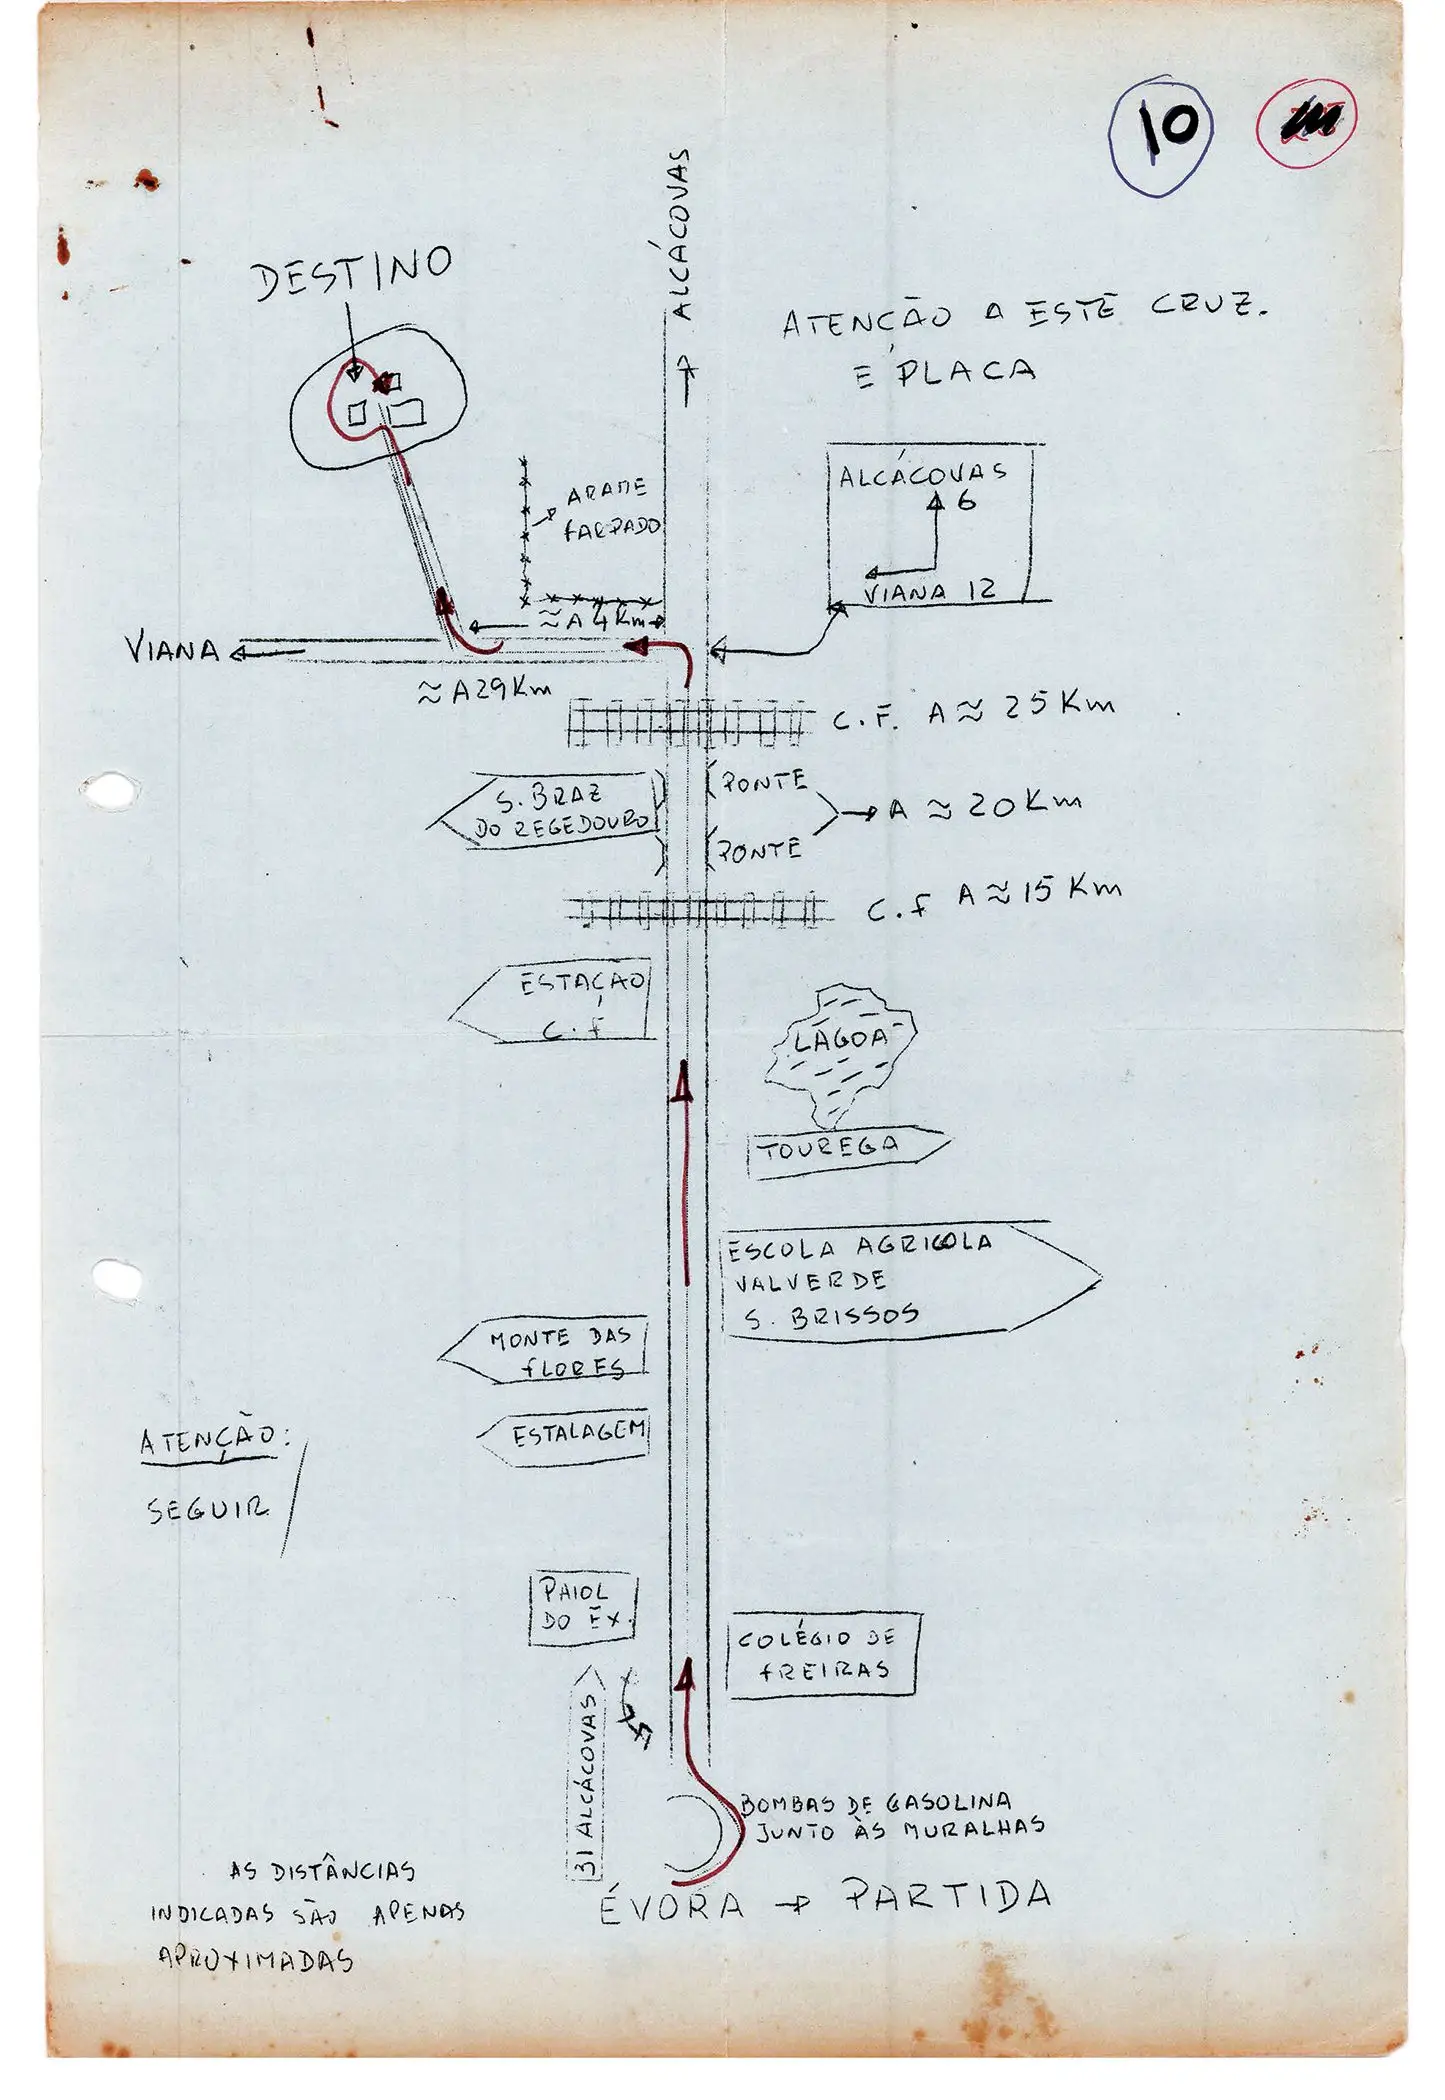 10
ALCÁÇOVAS
DESTINO
ATENÇÃO A ESTE CRUZ.
E PLACA
ALCÁÇOVAS
6
VIANA 12
ARAME
FARPADO
≈ A 4 Km
VIANA
≈ A 29 Km
C.F. A ≈ 25 Km
S. BRAZ
DO REGEDOURO
PONTE
A ≈ 20 Km
PONTE
C.F A ≈ 15 Km
ESTAÇÃO
C.F
LAGOA
TOUREGA
ESCOLA AGRICOLA
VALVERDE
S. BRISSOS
MONTE DAS
FLORES
ESTALAGEM
ATENÇÃO:
SEGUIR
PAIOL
DO EX.
COLÉGIO DE
FREIRAS
31 ALCÁÇOVAS
BOMBAS DE GASOLINA
JUNTO ÀS MURALHAS
ÉVORA → PARTIDA
AS DISTÂNCIAS
INDICADAS SÃO APENAS
APROXIMADAS